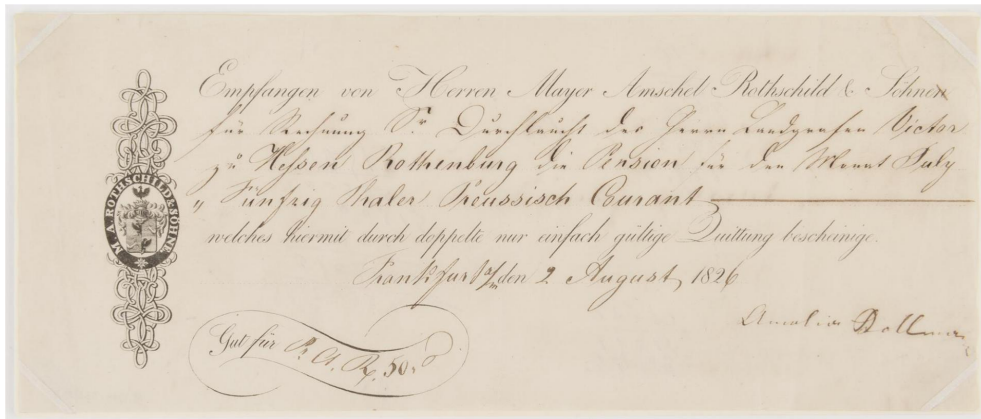 Empfangen von Herren Mayer Amschel Rothschild & Söhnen
für Rechnung Sr. Durchlaucht des Herrn Landgrafen Victor
zu Hessen Rothenburg die Pension für den Monat July
" Fünfzig Thaler Preussisch Courant
welches hiermit durch doppelte nur einfach gültige Quittung bescheinige.
Frankfurt a/m den 2 August 1826
Amalia
Gut für Pr. Ct. 50
M. A. ROTHSCHILD & SÖHNE